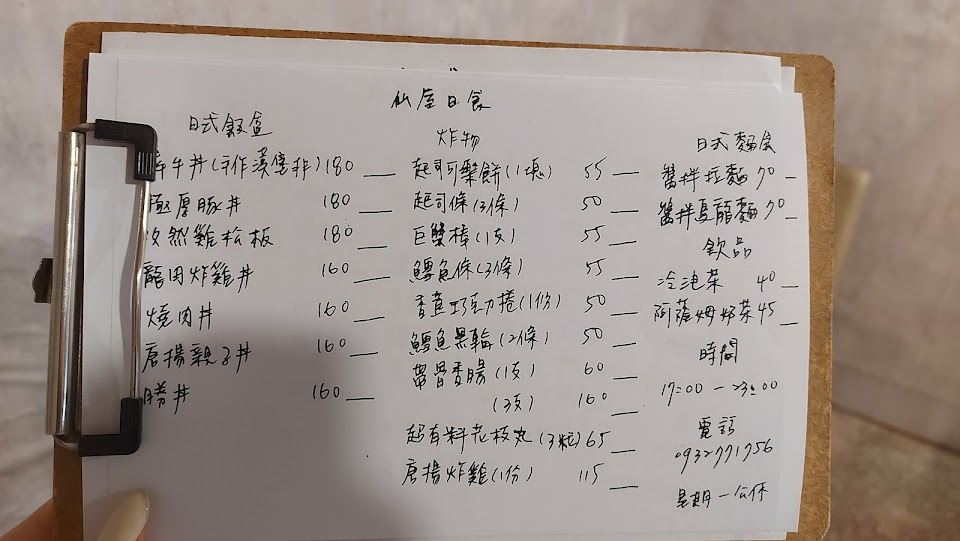 仙屋日食
日式飯盒
牛丼(手作漢堡排) 180
厚豚丼 180
然雞松板 180
龍田炸雞丼 160
燒肉丼 160
唐揚親子丼 160
勝丼 160
炸物
起司可樂餅(1塊) 55
起司條(3條) 50
巨蟹棒(1支) 55
鱈魚條(3條) 55
香蕉巧克力捲(1份) 50
鱈魚黑輪(2條) 50
帶骨香腸(1支) 60
(3支) 160
超有料花枝丸(3粒) 65
唐揚炸雞(1份) 115
日式麵食
醬拌拉麵 70
醬拌烏龍麵 70
飲品
冷泡茶 40
阿薩姆奶茶 45
時間
17:00 - 23:00
電話
0932771756
星期一公休